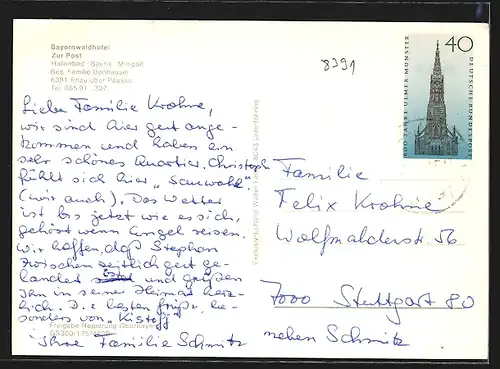 Bayernwaldhotel
Zur Post
Hallenbad · Sauna · Minigolf
Bes. Familie Donhauser
8391 Erlau über Passau
Tel. 085 91 - 307
8391
Liebe Familie Krohne,
wir sind hier gut ange-
kommen und haben ein
sehr schönes Quartier. Christoph
fühlt sich hier „Sauwohl"
(wir auch). Das Wetter
ist bis jetzt wie es sich
gehört wenn Engel reisen.
Wir hoffen, daß Stephan
zwischenzeitlich gut ge-
landet und grüßen
ihn in seiner Heimat herz-
lich. Die besten Grüße, be-
sonders von „Kistoff"
Ihre Familie Schmitz
Freigabe Regierung Oberbayern
GS300/
40
DEUTSCHE BUNDESPOST
600 JAHRE ULMER MÜNSTER
Familie
Felix Krohne
Wolfmahderstr 56
7000 Stuttgart 80
neben Schmitz